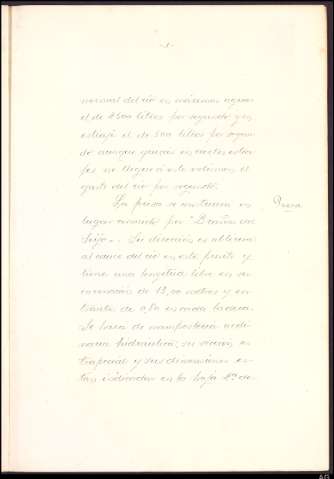 -3-
normal del río en máximas aguas
el de 4500 litros por segundo y en
estiaje el de 500 litros por segun-
do aunque quizás en ciertos estia-
jes no llegue a este volumen el
gasto del río por segundo.
La presa se construirá en Presa
lugar conocido por
Su dirección es oblicua
al cauce del río en este punto y
tiene una longitud libre en co-
ronación de 18,00 metros y en-
trante de 0,80 en cada ladera.
Se hará de mampostería ordi-
naria hidráulica; su sección es
trapecial y sus dimensiones es-
tán indicadas en la hoja 4ª de